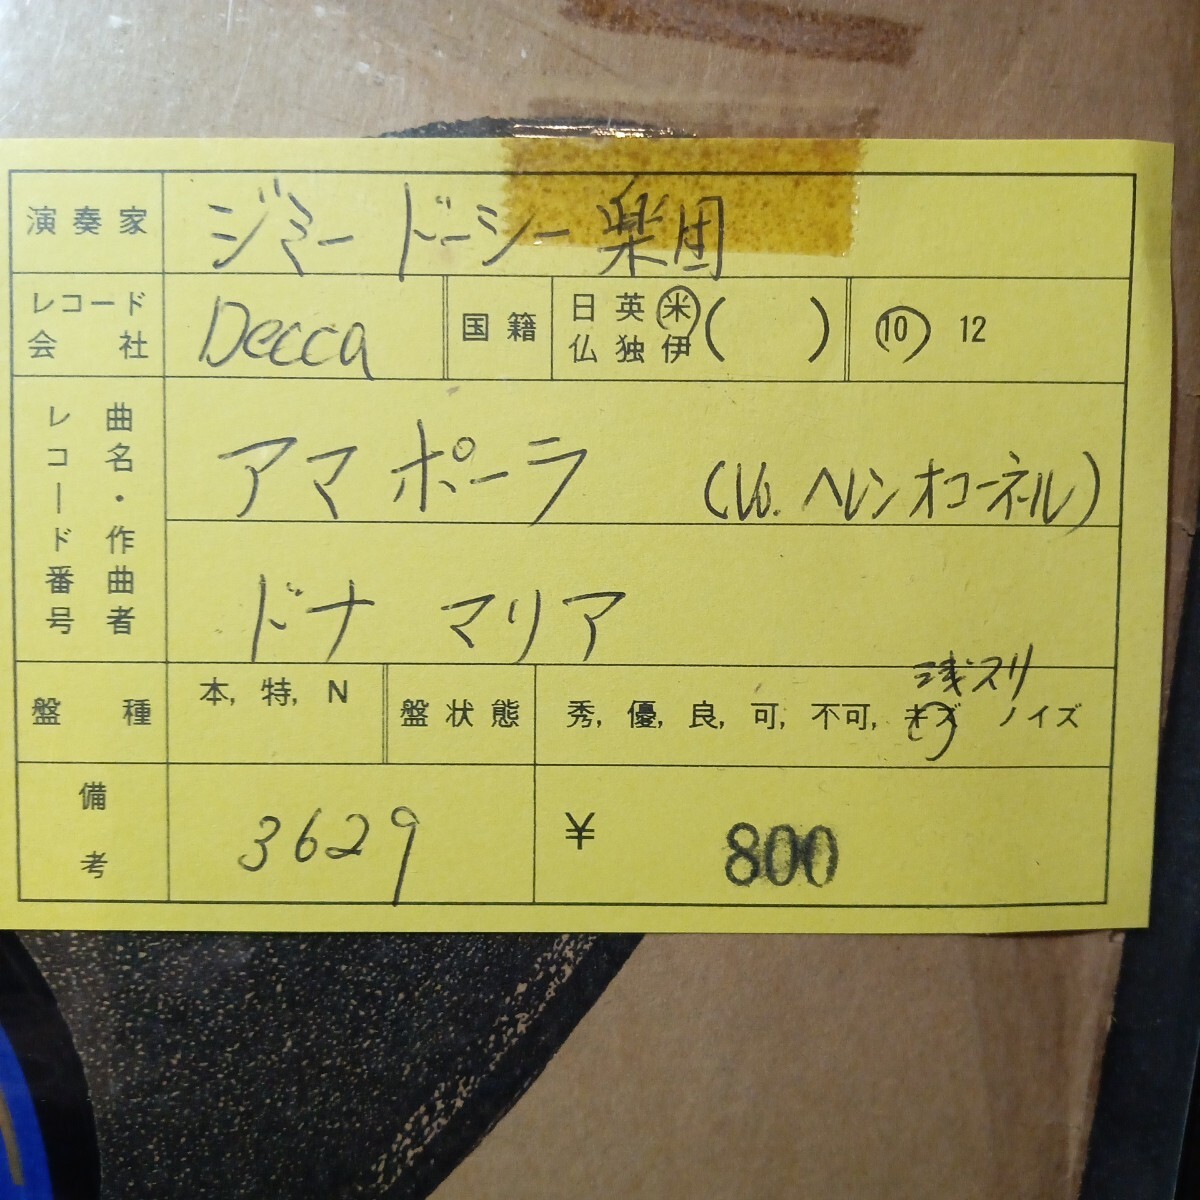 演奏家 ジミー ドーシー楽団
レコード会社 Decca 国籍 日 英 米 仏 独 伊 ( ) 10 12
曲名・作曲者 レコード番号
アマポーラ (Vo. ヘレンオコーネル)
ドナ マリア
浅スリ
盤種 本, 特, N 盤状態 秀, 優, 良, 可, 不可, キズ ノイズ
備考 3629 ¥ 800